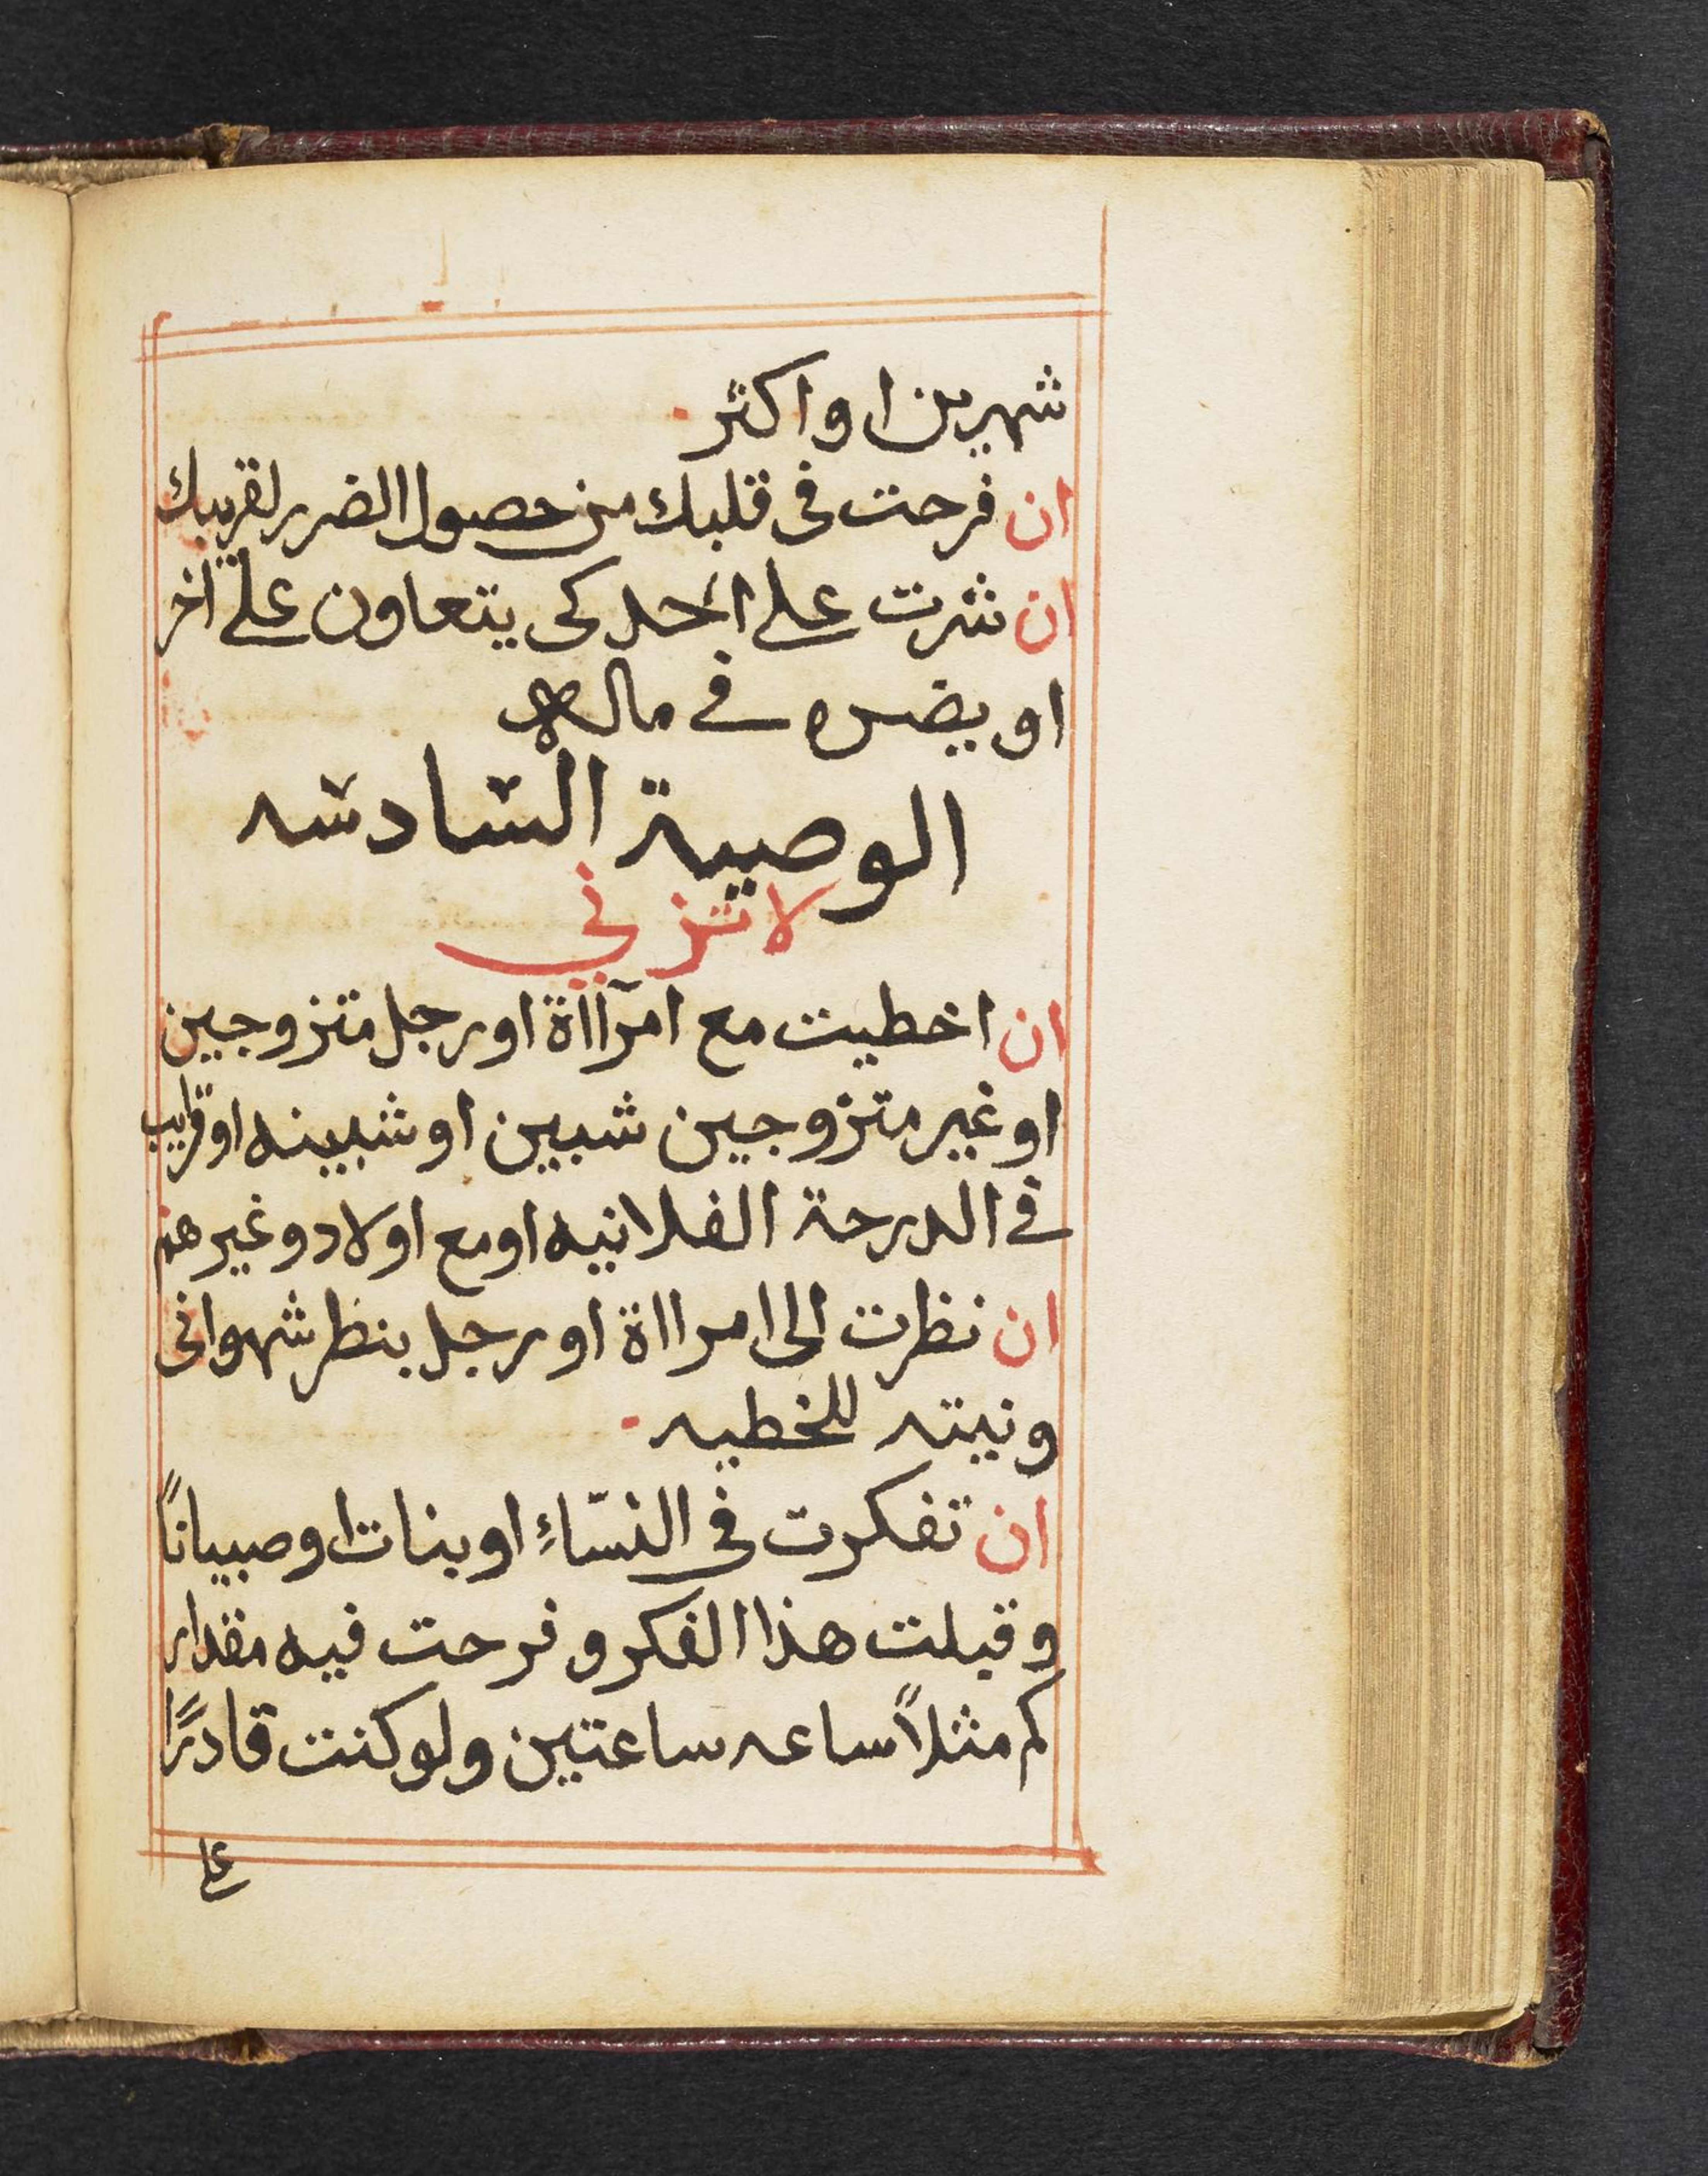 شهرين او اكثر.
ان فرحت فى قلبك من حصول الضرر لقريبك
ان شرت على احد كى يتعاون على آخر
او يضره في ماله
الوصية السادسه
لا تزني
ان اخطيت مع امرآاة او رجل متزوجين
او غير متزوجين شبين او شبينه او قرايب
في الدرجة الفلانيه او مع اولاد وغيرهم
ان نظرت الى امرااة او رجل بنظر شهوانى
ونيته للخطيه.
ان تفكرت في النسّاءِ او بنات او صبياناً
وقبلت هذا الفكر وفرحت فيه مقدار
كم مثلاً ساعه ساعتين ولو كنت قادرًا
على